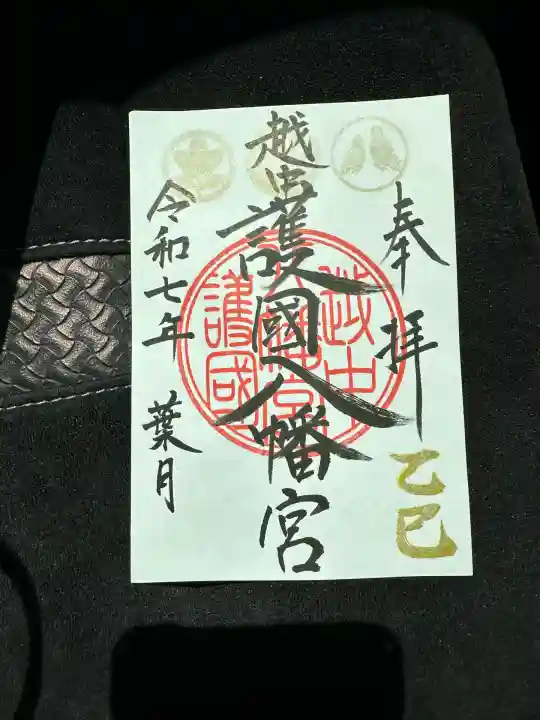 奉拝
乙巳
越中
護國八幡宮
令和七年 葉月
越中
八幡宮
護國